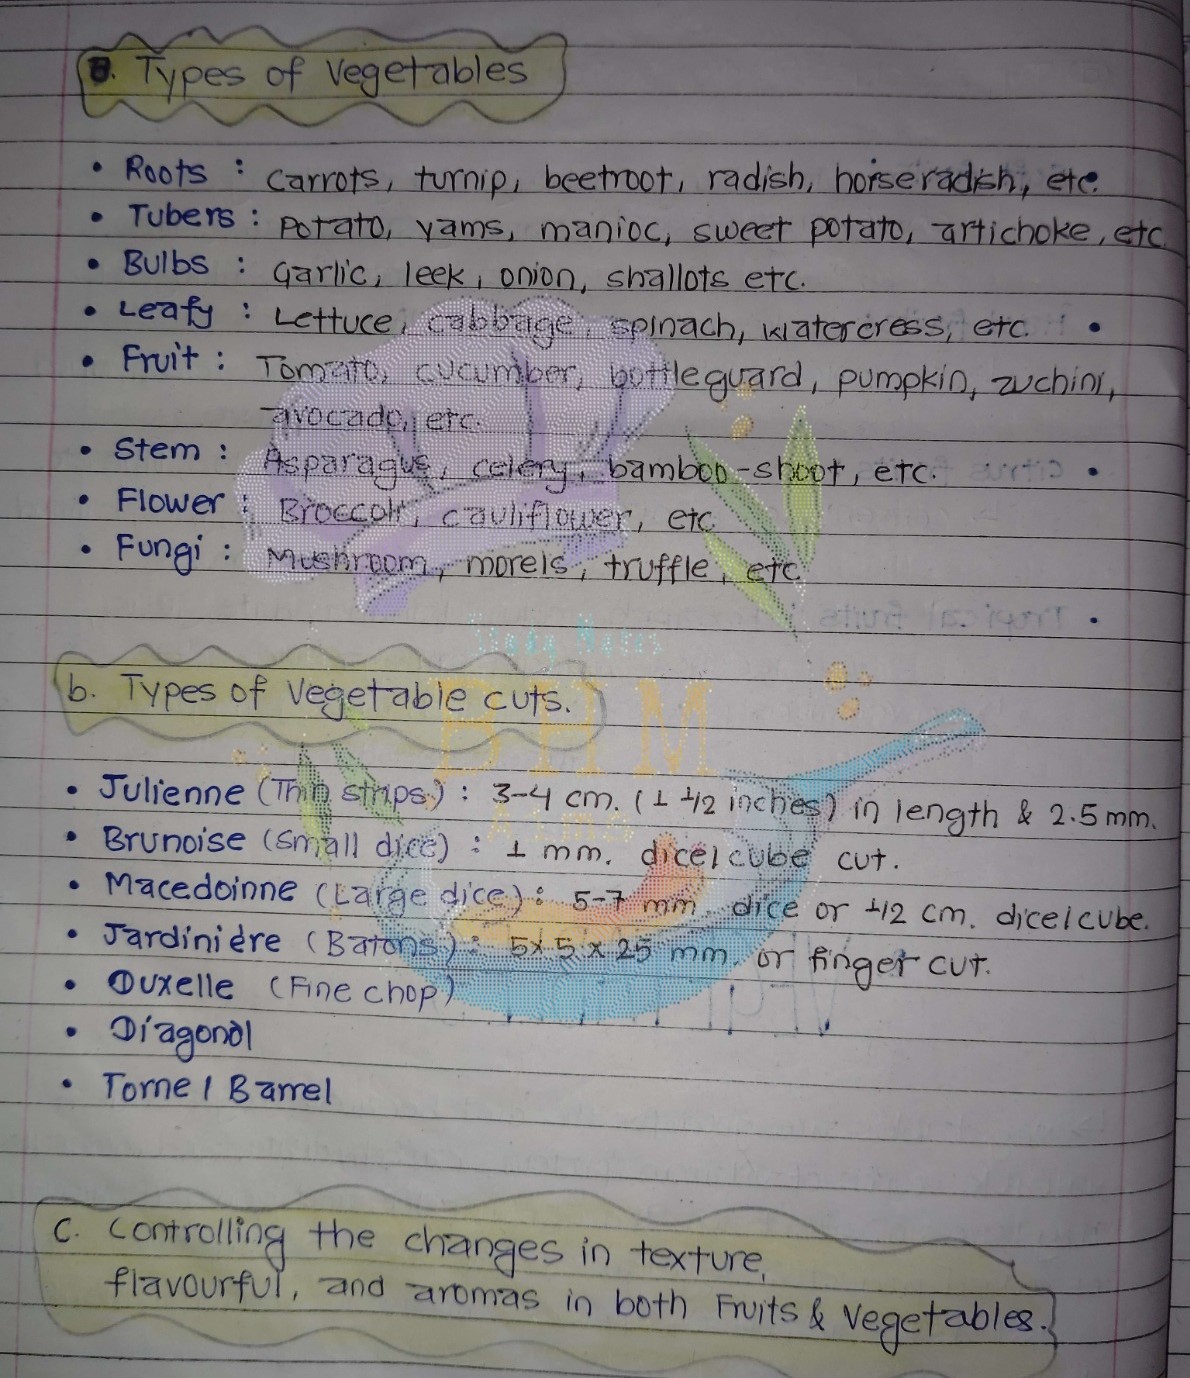 B. Types of Vegetables
• Roots : Carrots, turnip, beetroot, radish, horseradish, etc.
• Tubers : Potato, yams, manioc, sweet potato, artichoke, etc
• Bulbs : Garlic, leek, onion, shallots etc.
• Leafy : Lettuce, cabbage, spinach, watercress, etc.
• Fruit : Tomato, cucumber, bottleguard, pumpkin, zuchini,
avocado, etc.
• Stem : Asparagus, celery, bamboo-shoot, etc.
• Flower : Broccoli, cauliflower, etc
• Fungi : Mushroom, morels, truffle, etc
Study Notes
BHM
b. Types of Vegetable cuts.
• Julienne (Thin strips) : 3-4 cm. (1 1/2 inches) in length & 2.5 mm.
• Brunoise (Small dice) : 1 mm. dice/cube cut.
• Macedoinne (Large dice) : 5-7 mm. dice or 1/2 cm. dice/cube.
• Jardiniére (Batons) : 5x5x25 mm. or finger cut.
• Duxelle (Fine chop)
• Diagonal
• Torne / Barrel
C. Controlling the changes in texture,
flavourful, and aromas in both Fruits & Vegetables.